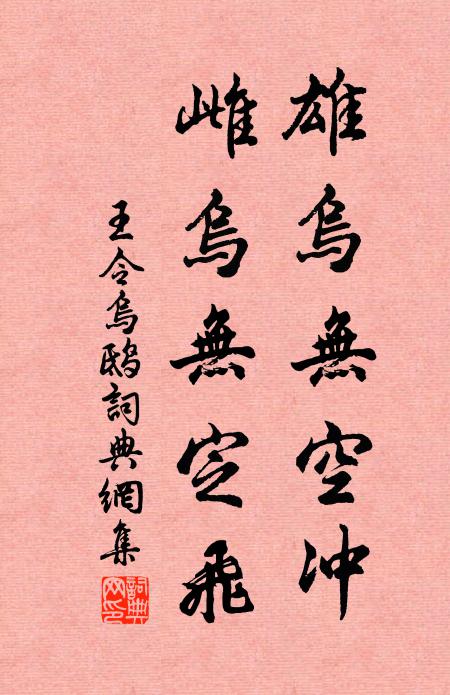 雄烏無空冲
雌烏無定飛
王令烏鴟詞典網集
詞典网印